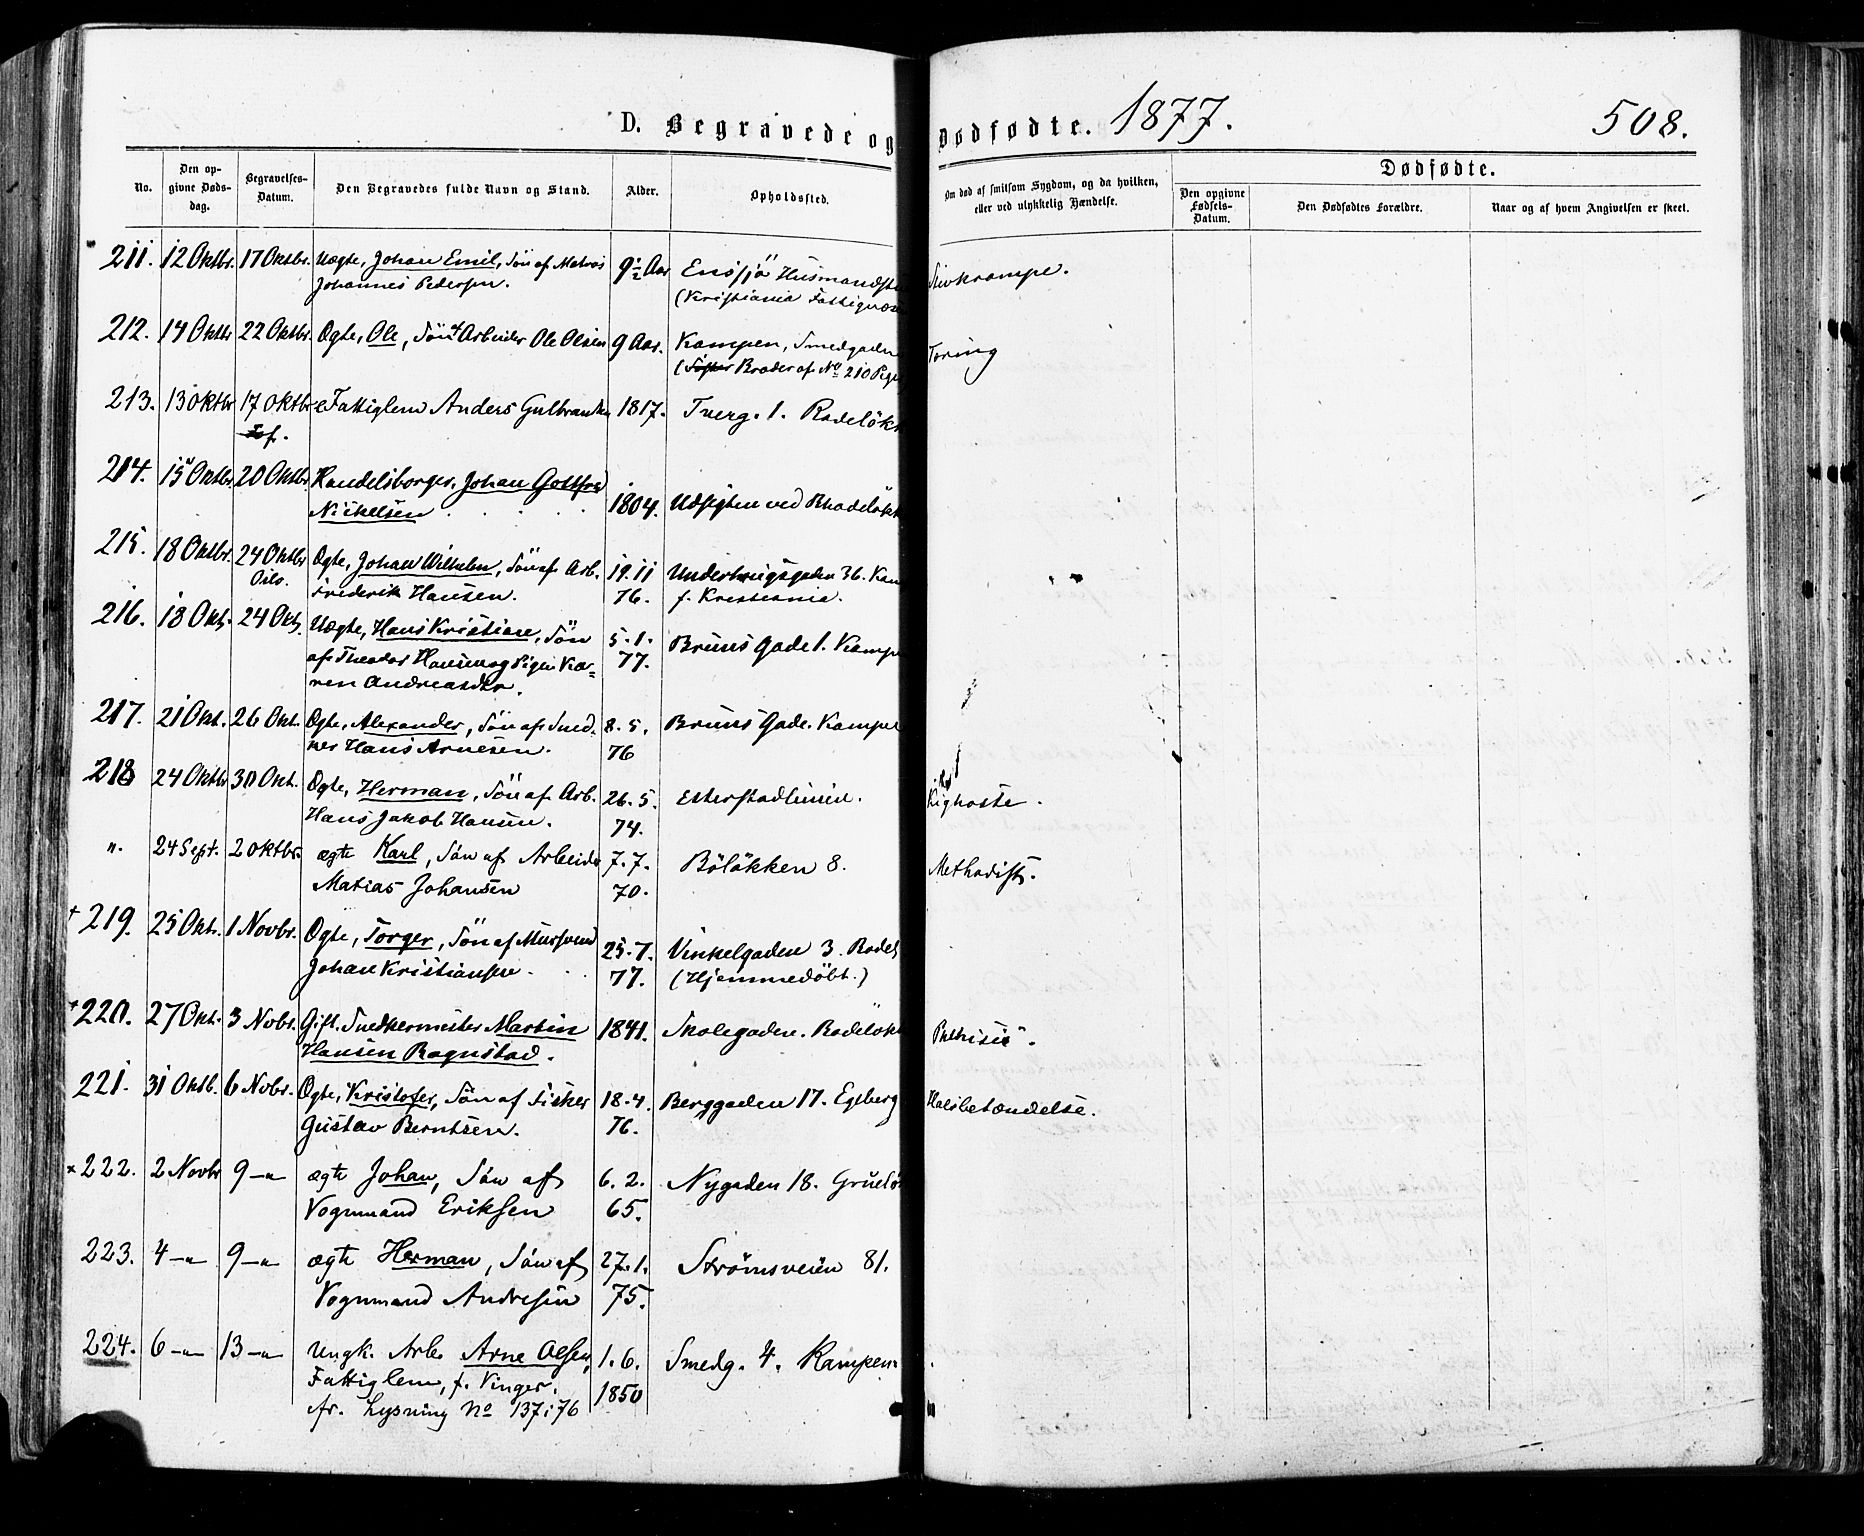 D. Begravede og Dødfødte. 1877. 508.
No.
Den opgivne Døds-dag.
Begravelses-Datum.
Den Begravedes fulde Navn og Stand.
Alder.
Opholdssted.
Om død af smitsom Sygdom, og da hvilken, eller ved ulykkelig Hændelse.
Dødfødte.
Den opgivne Fødsels-Datum.
Den Dødfødtes Forældre.
Naar og af hvem Angivelsen er skeet.
211. 12 Oktbr. 17 Oktbr. Uægte, Johan Emil, Søn af Matros 9½ Aar Ensjø Husmandspl Stivkrampe.
Johannes Pedersen. (Kristiania Fattigvæs
212. 14 Oktbr 22 Oktbr. Ægte, Ole, Søn af Arbeider Ole Olsen 9 Aar. Kampen, Smedgaden Tæring
(Søster Broder af No 210 Pige
213. 13 Oktbr 17 Oktbr Fattiglem Anders Gulbrandsen 1817. Tverg. 1. Rodeløkk
214. 15 Oktbr. 20 Oktbr. Handelsborger, Johan Gottfried
Nickelsen 1804. Udsigten ved Rhodeløkk
215. 18 Oktbr. 24 Oktbr Ægte, Johan Wilhelm, Søn af Arb. 19.11 Underhaugsgaden 36. Kam
Oslo. Frederik Hansen. 76. f. Kristiania.
216. 18 Okt. 24 Okt. Uægte, Hans Kristian, Søn 5.1. Bruns Gade 1. Kampe
af Theodor Hansen og Pigen Ka- 77.
ren Andreasdtr.
217. 21 Okt. 26 Okt. Ægte, Alexander, Søn af Sned- 8.5. Bruns Gade. Kampen
ker Hans Arnesen. 76
218 24 Oktbr 30 Okt. Ægte, Herman, Søn af Arb. 26.5. Etterstadlinien. Kighoste.
Hans Jakob Hansen. 74.
". 24 Sept. 2 Oktbr. ægte Karl, Søn af Arbeider 7.7. Bøløkken 8. Methodist.
Matias Johansen 70.
+ 219. 25 Okt. 1 Novbr. Ægte, Torger, Søn af Mursvend 25.7. Vinkelgaden 3. Rodel
Johan Kristiansen. 77. (Hjemmedøbt.)
+ 220. 27 Okt. 3 Novbr. Gift. Snedkermester Martin 1841. Skolegaden. Rodeløkk Phthisis.
Hansen Rognstad.
221. 31 Oktb. 6 Novbr. Ægte, Kristofer, Søn af Fisker 18.4. Berggaden 17. Egeberg Halsbetændelse.
Gustav Berntsen. 76.
x 222. 2 Novbr 9 —"— ægte Johan, Søn af 6.2. Nygaden 18. Grueløk
Vognmand Eriksen 65.
223. 4 —"— 9 —"— ægte Herman, Søn af 27.1. Strømsveien 81.
Vognmand Andresen 75.
224. 6 —"— 13 —"— Ungk. Arb. Arne Olsen, 1.6. Smedg. 4. Kampen
Fattiglem, f. Vinger. 1850
fr. Lysning No 137 i 76